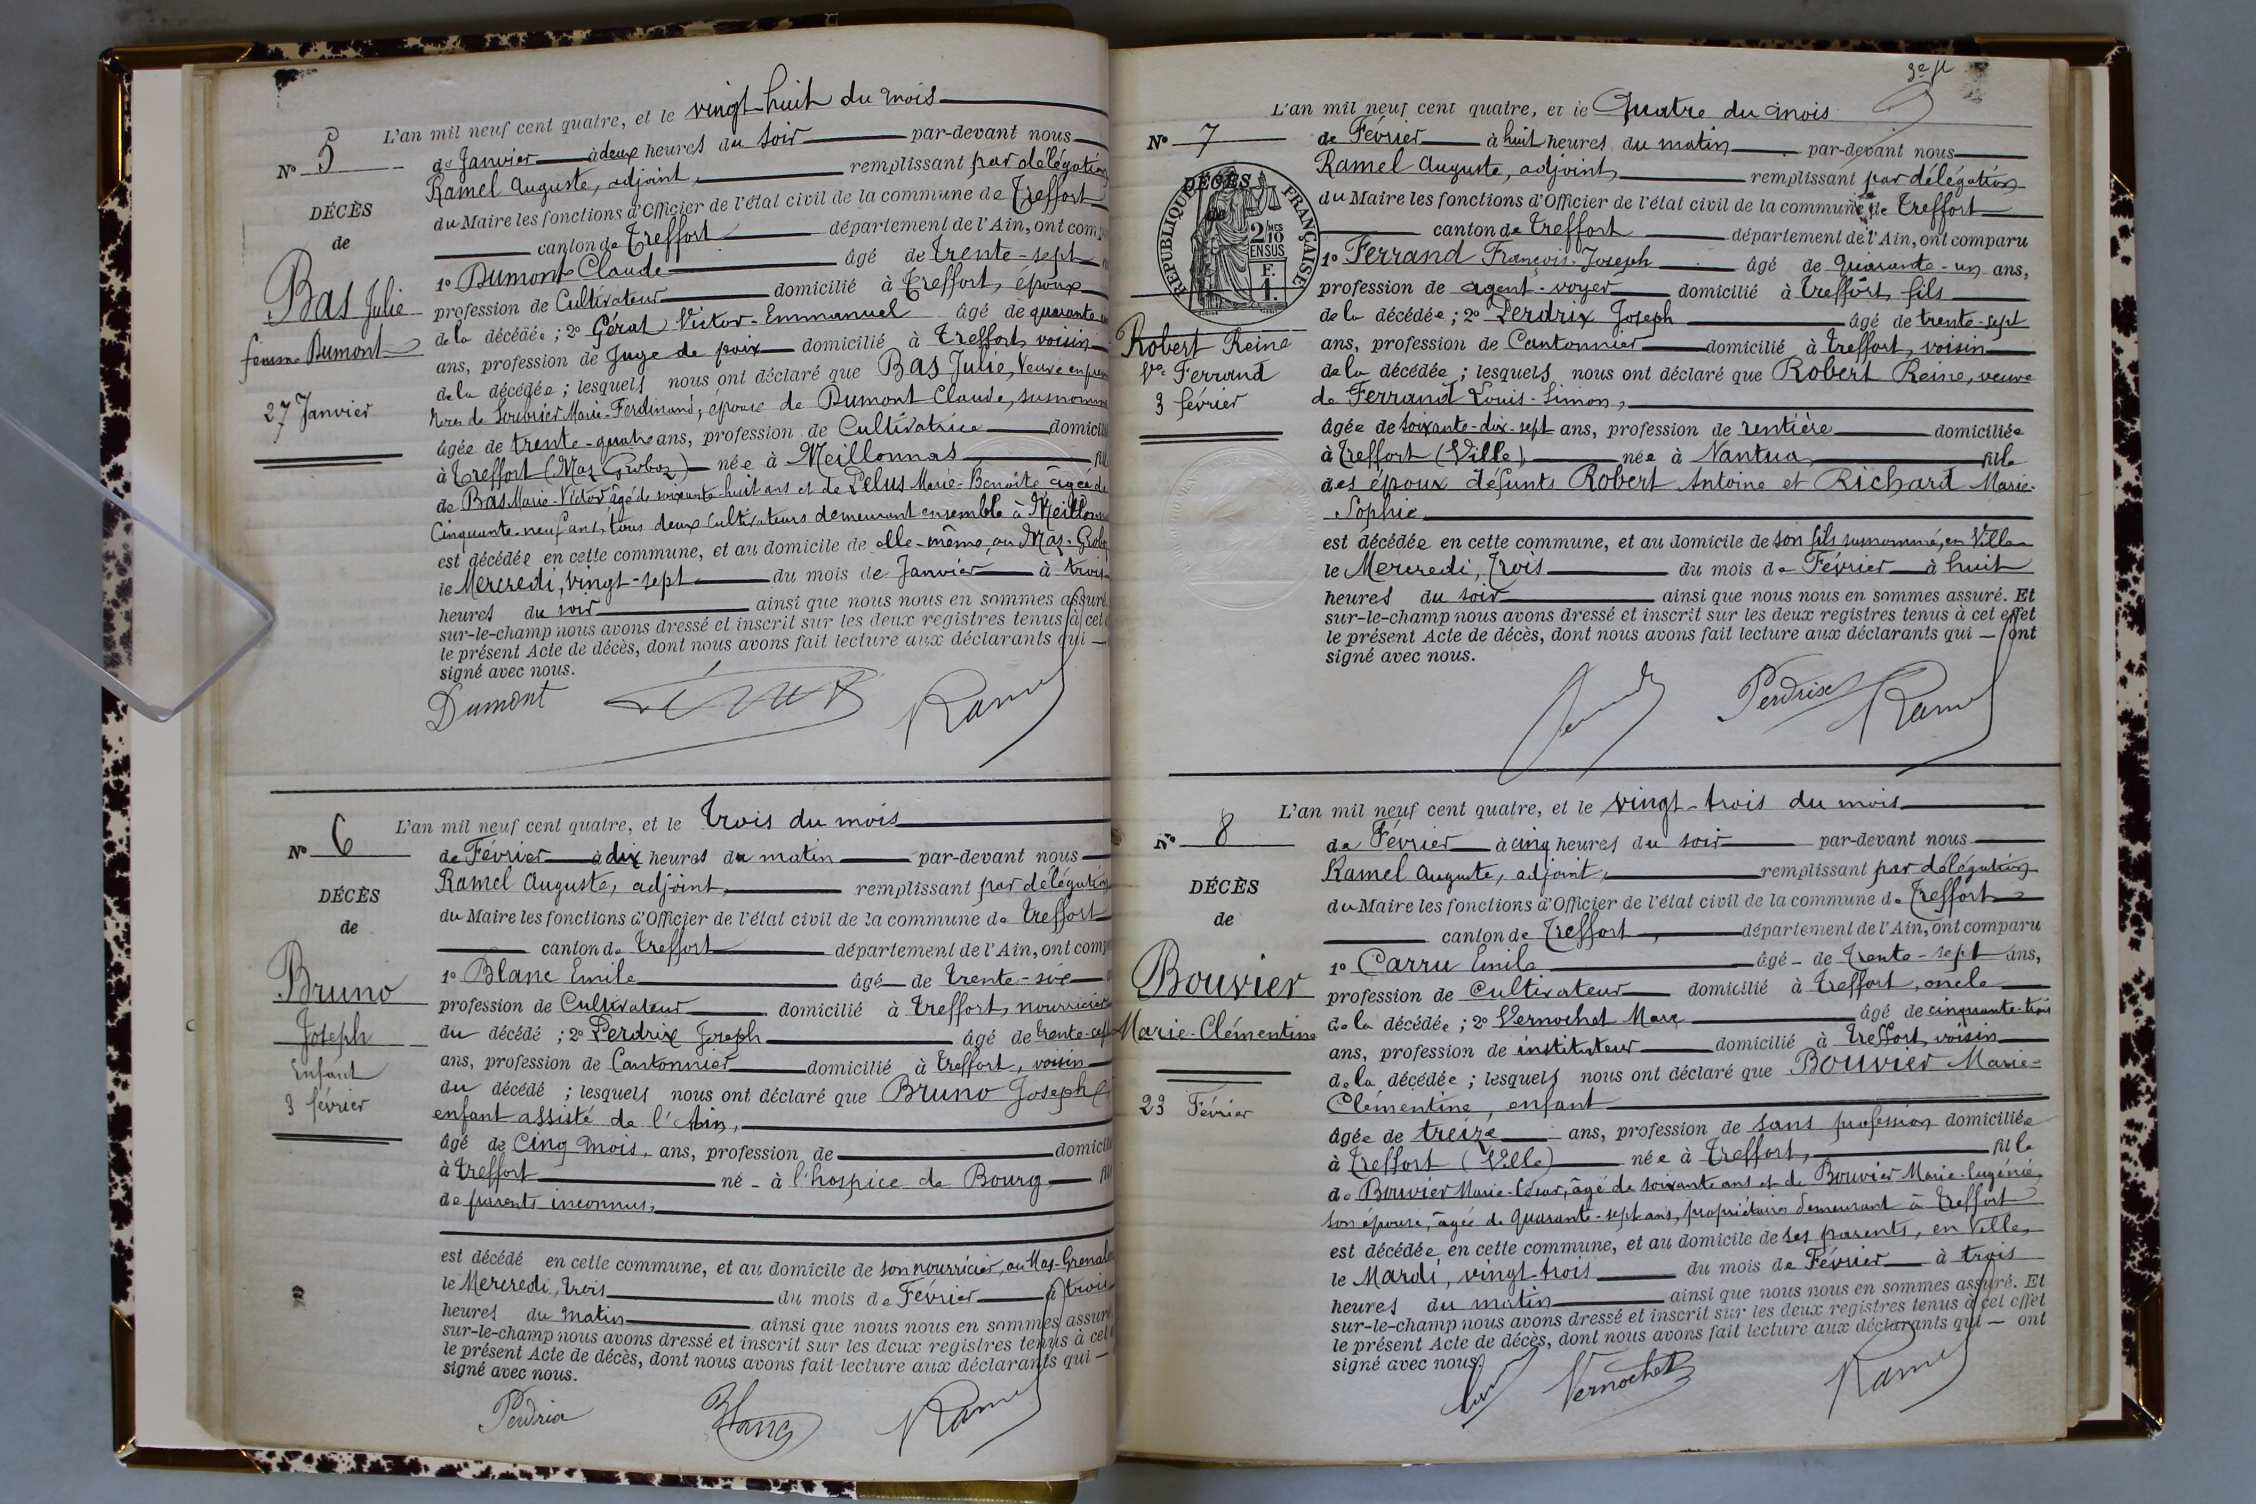 L'an mil neuf cent quatre, et le vingt-huit du mois
N° 5
de Janvier à deux heures du soir par-devant nous
Ramel Auguste, adjoint, remplissant par délégation
DÉCÈS
du Maire les fonctions d'Officier de l'état civil de la commune de Treffort
de
canton de Treffort département de l'Ain, ont comp
1° Dumont Claude âgé de trente-sept
Bas Julie
profession de Cultivateur domicilié à Treffort, époux
de la décédée; 2° Gérat Victor-Emmanuel âgé de quarante
femme Dumont
ans, profession de Juge de paix domicilié à Treffort, voisin
de la décédée; lesquels nous ont déclaré que Bas Julie, Veuve en pre
27 Janvier
Noces de Louvrier Marie-Ferdinand, épouse de Dumont Claude, susnommé
âgée de trente-quatre ans, profession de Cultivatrice domicili
à Treffort (Mas Groboz) née à Meillonnas fil
de Bas Marie-Victor âgé de soixante-huit ans et de Pelus Marie-Benoite âgée de
Cinquante-neuf ans, tous deux Cultivateurs demeurant ensemble à Meillonn
est décédée en cette commune, et au domicile de elle-même, au Mas-Grobo
le Mercredi, vingt-sept du mois de Janvier à trois
heures du soir ainsi que nous nous en sommes assuré.
sur-le-champ nous avons dressé et inscrit sur les deux registres tenus à cet
le présent Acte de décès, dont nous avons fait lecture aux déclarants qui —
signé avec nous.
Dumont Ramel
L'an mil neuf cent quatre, et le trois du mois
N° 6
de Février à dix heures du matin par-devant nous
Ramel Auguste, adjoint, remplissant par délégation
DÉCÈS
du Maire les fonctions d'Officier de l'état civil de la commune de Treffort
de
canton de Treffort département de l'Ain, ont comp
1° Blanc Emile âgé de trente-six
Bruno
profession de Cultivateur domicilié à Treffort, nourricier
Joseph
du décédé; 2° Perdrix Joseph âgé de trente-sept
ans, profession de Cantonnier domicilié à Treffort, voisin
Enfant
du décédé; lesquels nous ont déclaré que Bruno Joseph
3 février
enfant assisté de l'Ain,
âgé de Cinq mois, ans, profession de domicili
à Treffort né - à l'hospice de Bourg fil
de parents inconnus,
est décédé en cette commune, et au domicile de son nourricier, au Mas-Grenal
le Mercredi, trois du mois de Février à trois
heures du matin ainsi que nous nous en sommes assuré
sur-le-champ nous avons dressé et inscrit sur les deux registres tenus à cet
le présent Acte de décès, dont nous avons fait lecture aux déclarants qui —
signé avec nous.
Perdrix Blanc Ramel
L'an mil neuf cent quatre, et le Quatre du mois
N° 7
de Février à huit heures du matin par-devant nous
Ramel Auguste, adjoint, remplissant par délégation
DÉCÈS
de
RÉPUBLIQUE FRANÇAISE
2/10 MES
EN SUS
F.
1.
du Maire les fonctions d'Officier de l'état civil de la commune de Treffort
canton de Treffort département de l'Ain, ont comparu
1° Ferrand François-Joseph âgé de Quarante-un ans,
profession de agent-voyer domicilié à Treffort, fils
de la décédée; 2° Perdrix Joseph âgé de trente-sept
Robert Reine
ans, profession de Cantonnier domicilié à Treffort, voisin
Vve Ferrand
de la décédée; lesquels nous ont déclaré que Robert Reine, veuve
3 février
de Ferrand Louis-Simon,
âgée de soixante-dix-sept ans, profession de rentière domiciliée
à Treffort (Ville) née à Nantua, fille
des époux défunts Robert Antoine et Richard Marie-
Sophie
est décédée en cette commune, et au domicile de son fils susnommé, en Ville
le Mercredi, Trois du mois de Février à huit
heures du soir ainsi que nous nous en sommes assuré. Et
sur-le-champ nous avons dressé et inscrit sur les deux registres tenus à cet effet
le présent Acte de décès, dont nous avons fait lecture aux déclarants qui — ont
signé avec nous.
Perdrix Ramel
L'an mil neuf cent quatre, et le vingt-trois du mois
N° 8
de Février à cinq heures du soir par-devant nous
Ramel Auguste, adjoint, remplissant par délégation
DÉCÈS
du Maire les fonctions d'Officier de l'état civil de la commune de Treffort
de
canton de Treffort, département de l'Ain, ont comparu
1° Carru Emile âgé - de trente-sept ans,
Bouvier
profession de Cultivateur domicilié à Treffort, oncle
Marie-Clémentine
de la décédée; 2° Vernochet Marc âgé de cinquante-trois
ans, profession de instituteur domicilié à Treffort, voisin
de la décédée; lesquels nous ont déclaré que Bouvier Marie-
23 Février
Clémentine, enfant
âgée de treize ans, profession de sans profession domiciliée
à Treffort (Ville) née à Treffort, fille
de Bouvier Marie-César, âgé de soixante ans et de Bouvier Marie-Eugénie,
son épouse, âgée de quarante-sept ans, propriétaires demeurant à Treffort
est décédée en cette commune, et au domicile de ses parents, en Ville,
le Mardi, vingt-trois du mois de Février à trois
heures du matin ainsi que nous nous en sommes assuré. Et
sur-le-champ nous avons dressé et inscrit sur les deux registres tenus à cet effet
le présent Acte de décès, dont nous avons fait lecture aux déclarants qui — ont
signé avec nous.
Vernochet Ramel